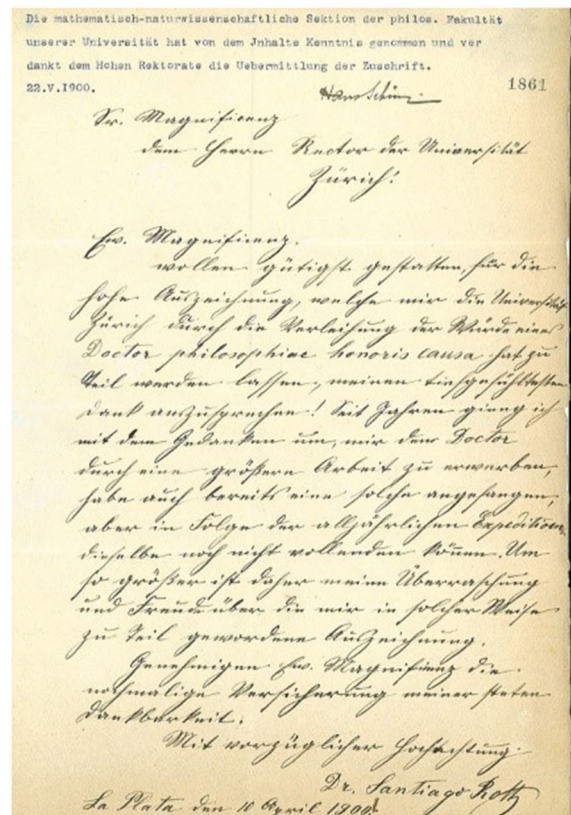 Die mathematisch-naturwissenschaftliche Sektion der philos. Fakultät
unserer Universität hat von dem Jnhalte Kenntnis genommen und ver
dankt dem Hohen Rektorate die Uebermittlung der Zuschrift.
22.V.1900.
Hans Schinz
1861
Sr. Magnificenz
dem Herrn Rector der Universität
Zürich!
Ew. Magnificenz,
wollen gütigst gestatten, für die
hohe Auszeichnung, welche mir die Universität
Zürich durch die Verleihung der Würde eines
Doctor philosophiae honoris causa hat zu
Teil werden lassen, meinen tiefgefühltesten
Dank auszusprechen! Seit Jahren gieng ich
mit dem Gedanken um, mir den Doctor
durch eine größere Arbeit zu erwerben,
habe auch bereits eine solche angefangen,
aber in Folge der alljährlichen Expeditionen
dieselbe noch nicht vollenden können. Um
so größer ist daher meine Überraschung
und Freude über die mir in solcher Weise
zu Teil gewordene Auszeichnung.
Genehmigen Ew. Magnificenz die
nochmalige Versicherung meiner steten
Dankbarkeit.
Mit vorzüglicher Hochachtung
Dr. Santiago Roth
La Plata den 10 April 1900.